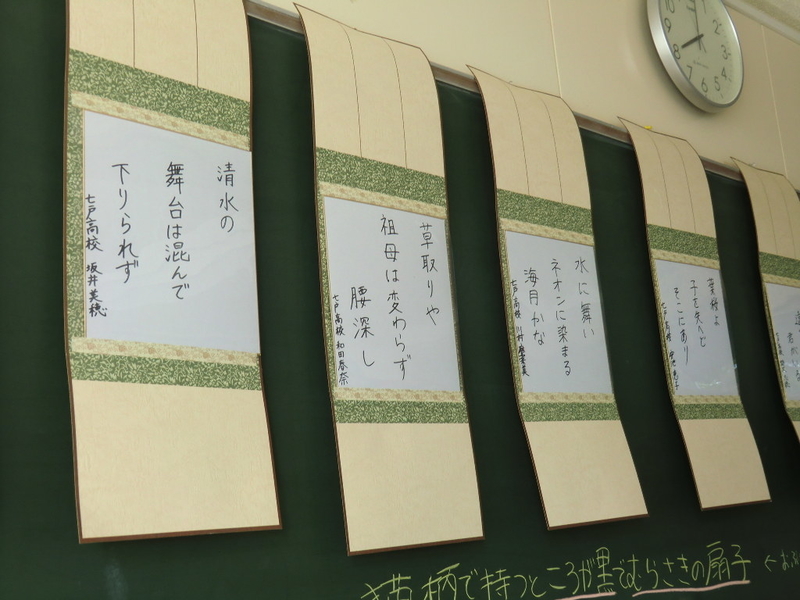 清水の
舞台は混んで
下りられず
七戸高校 坂井美穂
草取りや
祖母は変わらず
腰深し
七戸高校 和田春奈
水に舞い
ネオンに染まる
海月かな
七戸高校 川村
子を失へど
そこにあり
七戸高校
柄で持つところが黒でむらさきの扇子